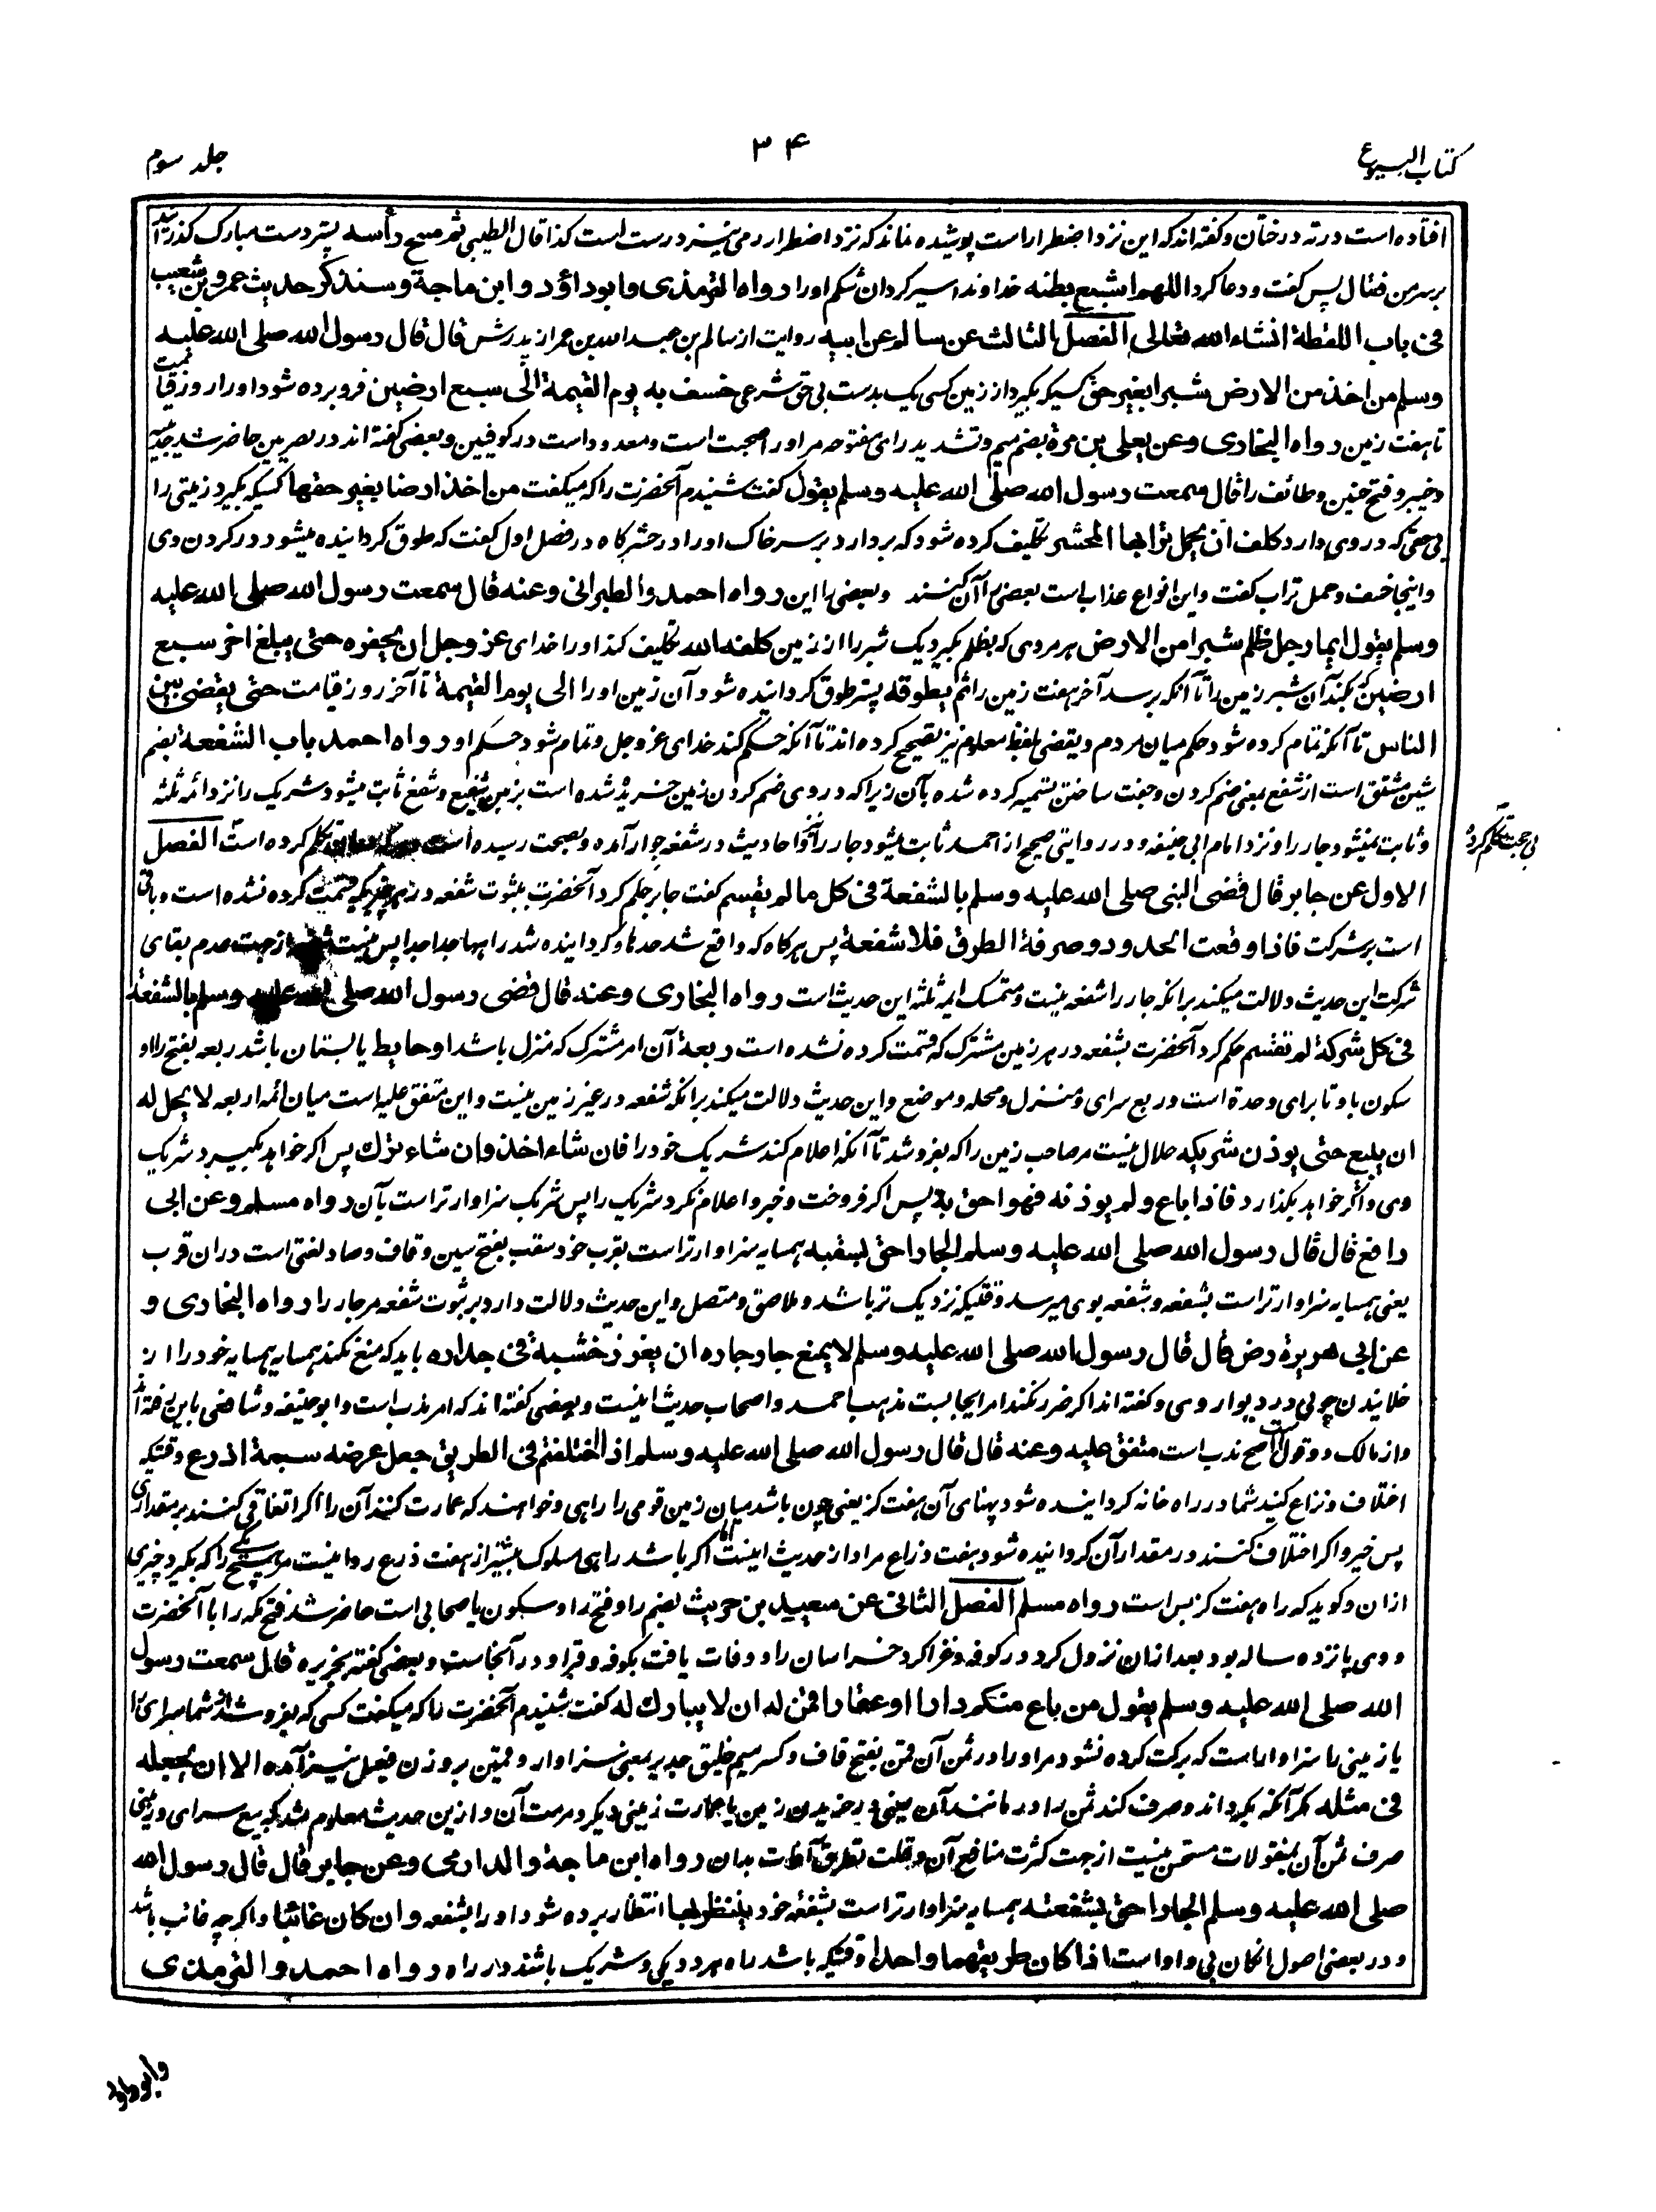 کتاب البیوع
۳۴
جلد سوم
افتاده است در ته درختان و گفته اند که این نزد اضطرار است پوشیده نماند که نزد اضطرار رمی نیز درست است کذا قال الطیبی ثم مسح رأسه پستر دست مبارک گذرانید
بر سر من فقال پس گفت و دعا کرد اللهم اشبع بطنه خداوندا سیر گردان شکم او را رواه الترمذی وابوداؤد وابن ماجة وسنذکر حدیث عمرو بن شعیب
فی باب اللقطة انشاء الله تعالی الفصل الثالث عن سالم عن ابیه روایت از سالم بن عبد الله بن عمر از پدرش قال قال رسول الله صلی الله علیه
وسلم من اخذ من الارض شبرا بغیر حق کسیکه بگیرد از زمین کسی یک بدست بی حق شرعی خسف به یوم القیمة الی سبع ارضین فرو برده شود او را روز قیامت
تا هفت زمین رواه البخاری وعن یعلی بن مرة بضم میم و تشدید رای مفتوحه مر او را صحبت است و معدود است در کوفیین و بعضی گفته اند در بصریین حاضر شد حدیبیه
و خیبر و فتح حنین و طائف را قال سمعت رسول الله صلی الله علیه وسلم یقول گفت شنیدم آنحضرت را که میگفت من اخذ ارضا بغیر حقها کسیکه بگیرد زمینی را
بی حقی که در وی دارد کلف ان یحمل ترابها المحشر تکلیف کرده شود که بردارد بر سر خاک او را در حشرگاه در فصل اول گفت که طوق گردانیده میشود در گردن وی
و اینجا خسف و حمل تراب گفت و این انواع عذاب است بعضی را آن کنند و بعضی را این رواه احمد والطبرانی وعنه قال سمعت رسول الله صلی الله علیه
وسلم یقول ایما رجل ظلم شبرا من الارض هر مردی که بظلم بگیرد یک شبر را از زمین کلفه الله تکلیف کند او را خدای عز وجل ان یحفره حتی یبلغ اخر سبع
ارضین که بکند آن شبر زمین را تا آنکه برسد آخر هفت زمین را ثم یطوقه پستر طوق گردانیده شود آن زمین او را الی یوم القیمة تا آخر روز قیامت حتی یقضی بین
الناس تا آنکه تمام کرده شود حکم میان مردم و یقضی بلفظ معلوم نیز تصحیح کرده اند تا آنکه حکم کند خدای عز وجل و تمام شود حکم او رواه احمد باب الشفعة بضم
شین مشتق است از شفع بمعنی ضم کردن و جفت ساختن تسمیه کرده شده بآن زیرا که در وی ضم کردن زمین خریده شده است بزمین شفیع و شفع ثابت میشود شریک را نزد ائمه ثلثه
و ثابت نمیشود جار را و نزد امام ابی حنیفه و در روایتی صحیح از احمد ثابت میشود جار را نیز و احادیث در شفعه جوار آمده و بصحت رسیده است کرده است الفصل
بی حجت تکلم کرده
الاول عن جابر قال قضی النبی صلی الله علیه وسلم بالشفعة فی کل ما لم یقسم گفت جابر حکم کرد آنحضرت بثبوت شفعه در هر چیزیکه قسمت کرده نشده است و باقی
است بر شرکت فاذا وقعت الحدود و صرفة الطرق فلا شفعة پس هرگاه که واقع شد حدها و گردانیده شد راهها جدا جدا پس نیست شفعه از جهت عدم بقای
شرکت این حدیث دلالت میکند بر آنکه جار را شفعه نیست و متمسک ایمه ثلثه این حدیث است رواه البخاری وعنه قال قضی رسول الله صلی الله علیه وسلم بالشفعة
فی کل شرکة لم تقسم حکم کرد آنحضرت بشفعه در هر زمین مشترک که قسمت کرده نشده است ربعة آن امر مشترک که منزل باشد او حایط یا بستان باشد ربعه بفتح را و
سکون با و تا برای وحدة است و ربع سرای و منزل و محله و موضع و این حدیث دلالت میکند بر آنکه شفعه در غیر زمین نیست و این متفق علیه است میان ائمه اربعه لا یحل له
ان یبیع حتی یوذن شریکه حلال نیست مر صاحب زمین را که بفروشد تا آنکه اعلام کند شریک خود را فان شاء اخذ وان شاء ترك پس اگر خواهد بگیرد شریک
وی و اگر خواهد بگذارد فاذا باع ولم یوذنه فهو احق به پس اگر فروخت و خبر و اعلام نکرد شریک را پس شریک سزاوارتر است بآن رواه مسلم وعن ابی
رافع قال قال رسول الله صلی الله علیه وسلم الجار احق بسقبه همسایه سزاوارتر است بقرب خود سقب بفتح سین و قاف و صاد لغتی است در ان قرب
یعنی همسایه سزاوارتر است بشفعه و شفعه بوی میرسد وقتیکه نزدیک تر باشد و ملاصق و متصل و این حدیث دلالت دارد بر ثبوت شفعه مر جار را رواه البخاری و
عن ابی هریرة رض قال قال رسول الله صلی الله علیه وسلم لا یمنع جار جاره ان یغرز خشبة فی جداره باید که منع نکند همسایه همسایه خود را از
خلانیدن چوبی در دیوار وی و گفته اند اگر ضرر نکند امر ایجابست مذهب احمد و اصحاب حدیث اینست و بعضی گفته اند که امر ندب است و ابو حنیفه و شافعی باین رفته اند
و از مالک دو قول است اصح ندب است متفق علیه وعنه قال قال رسول الله صلی الله علیه وسلم اذا اختلفتم فی الطریق جعل عرضه سبعة اذرع وقتیکه
اختلاف و نزاع کنید شما در راه خانه گردانیده شود پهنای آن هفت گز یعنی چون باشد میان زمین قومی را راهی و خواهند که عمارت کنند آن را اگر اتفاق کنند بر مقداری
پس خیر و اگر اختلاف کنند در مقدار آن گردانیده شود هفت ذراع مراد از حدیث اینست اما اگر باشد راهی مسلوک بیشتر از هفت ذرع روا نیست مر هیچ یکی را که بگیرد چیزی
ازان و گوید که راه هفت گز بس است رواه مسلم الفصل الثانی عن سعید بن حریث بضم را و فتح را و سکون یا صحابی است حاضر شد فتح مکه را با آنحضرت
و وی پانزده ساله بود بعد ازان نزول کرد در کوفه و غزا کرد خراسان را و وفات یافت بکوفه و قبر او در آنجاست و بعضی گفته بجزیره قال سمعت رسول
الله صلی الله علیه وسلم یقول من باع منکم دارا او عقارا قمن له ان لا یبارك له گفت شنیدم آنحضرت را که میگفت کسی که بفروشد از شما سرای را
یا زمینی را سزاوار است که برکت کرده نشود مر او را در ثمن آن قمن بفتح قاف و کسر میم خلیق جدیر بمعنی سزاوار و قمین بر وزن فعیل نیز آمده الا ان یجعله
فی مثله مگر آنکه بگرداند و صرف کند ثمن را در مانند آن یعنی در خریدن زمین یا عمارت زمینی دیگر و مرمت آن و ازین حدیث معلوم شد که بیع سرای و زمینی
صرف ثمن آن بمنقولات مستحسن نیست از جهت کثرت منافع آن و قلت تطرق آفات بدان رواه ابن ماجة والدارمی وعن جابر قال قال رسول الله
صلی الله علیه وسلم الجار احق بشفعته همسایه سزاوارتر است بشفعه خود ینتظر بها انتظار برده شود او را بشفعه وان کان غائبا و اگرچه غائب باشد
و در بعضی اصول ان کان بی واو است اذا کان طریقهما واحدا وقتیکه باشد راه هر دو یکی و شریک باشند در راه رواه احمد والترمذی
وابوداود